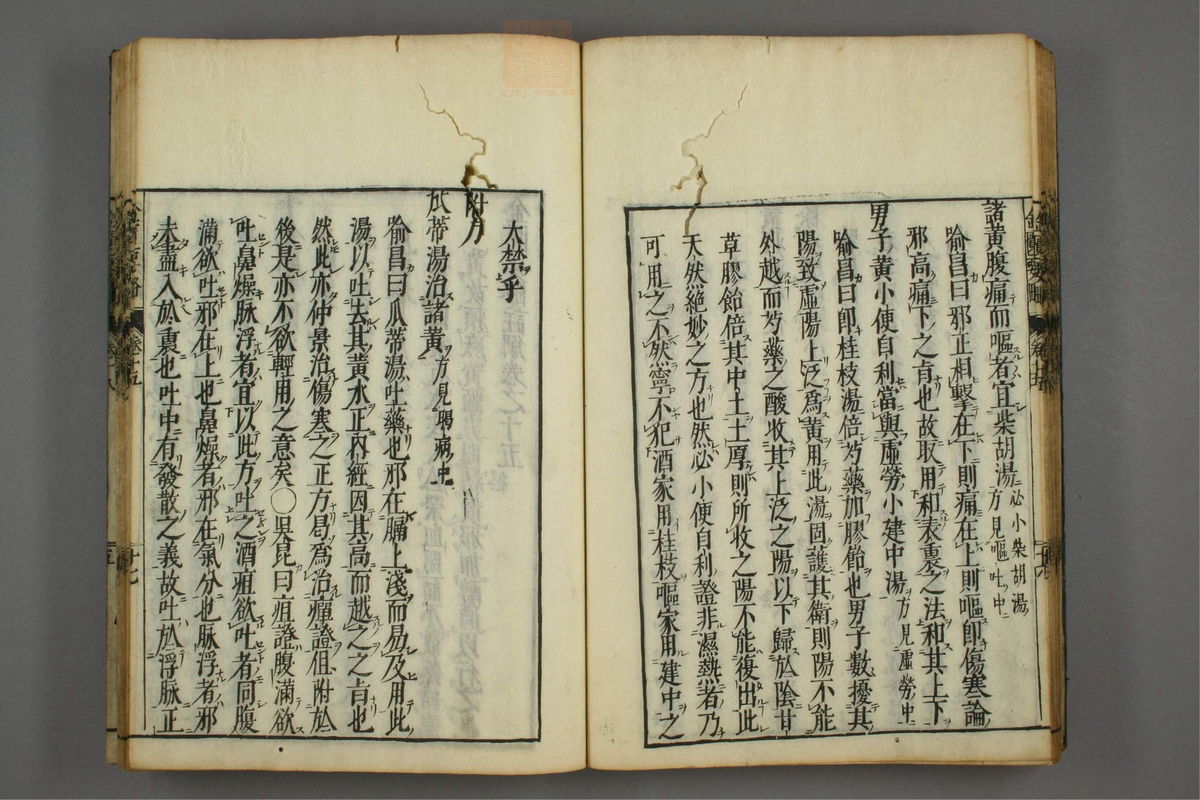 諸黃腹痛而嘔者宜柴胡湯必小柴胡湯方見嘔吐中
喻昌曰邪正相擊在下則痛在上則嘔即傷寒論
邪高痛下之旨也故取用和表裏之法和其上下
男子黃小便自利當與虛勞小建中湯方見虛勞中
喻昌曰即桂枝湯倍芍藥加膠飴也男子數擾其
陽致虛陽上泛爲黃用此湯固護其衛則陽不能
外越而芍藥之酸收其上泛之陽以下歸於陰甘
草膠飴倍其中土土厚則所收之陽不能復出此
天然絕妙之方也然必小便自利證非濕熱者乃
可用之不然寧不犯酒家用桂枝嘔家用建中之
大禁乎
附方
瓜蒂湯治諸黃方見暍病中
喻昌曰瓜蒂湯吐藥也邪在膈上淺而易及用此
湯以吐去其黃水正內經因其高而越之之旨也
然此亦仲景治傷寒之正方曷爲治癉證但附於
後是亦不欲輕用之意矣○吳昆曰疸證腹滿欲
吐鼻燥脉浮者宜以此方吐之酒疸欲吐者同腹
滿欲吐邪在上也鼻燥者邪在氣分也脉浮者邪
未盡入於裏也吐中有發散之義故吐於浮脉正